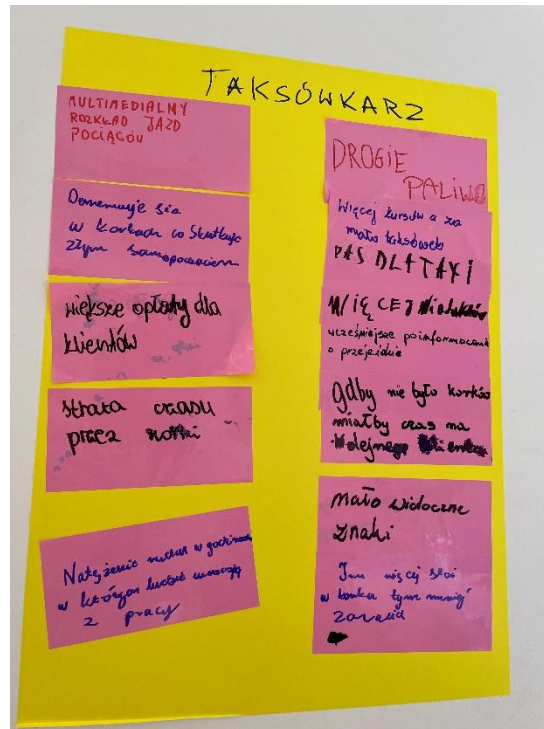 TAKSÓWKARZ
MULTIMEDIALNY
ROZKŁAD JAZD
POCIĄGÓW
Denerwuje się
w korkach co skutkuje
złym samopoczuciem
większe opłaty dla
klientów
strata czasu
przez korki
Natężenie ruchu w godzinach
w których ludzie wracają
z pracy
DROGIE
PALIWO
Więcej kursów a za
mało taksówek
PAS DLA TAXI
WIĘCEJ wiaduktów
wcześniejsze poinformowanie
o przejeździe
gdyby nie było korków
miałby czas na
kolejnego klienta
mało widoczne
znaki
Im więcej stoi
w korku tym mniej
zarabia